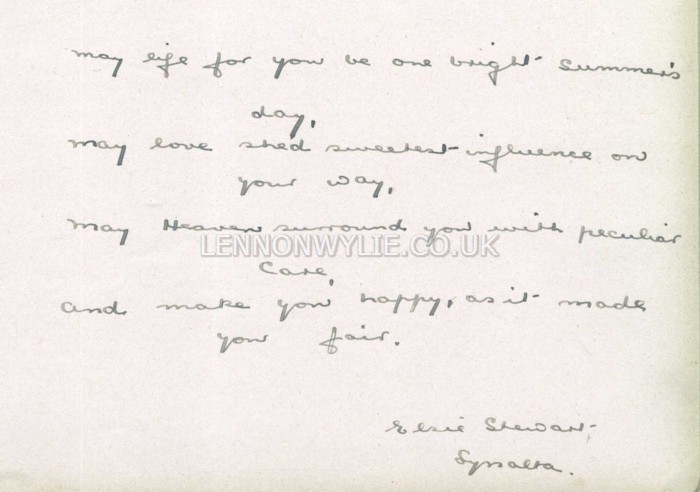 may life for you be one bright summer's
day,
may love shed sweetest influence on
your way,
may Heaven surround you with peculiar
LENNONWYLIE.CO.UK
Care,
and make you happy, as it made
you fair.
Elsie Stewart,